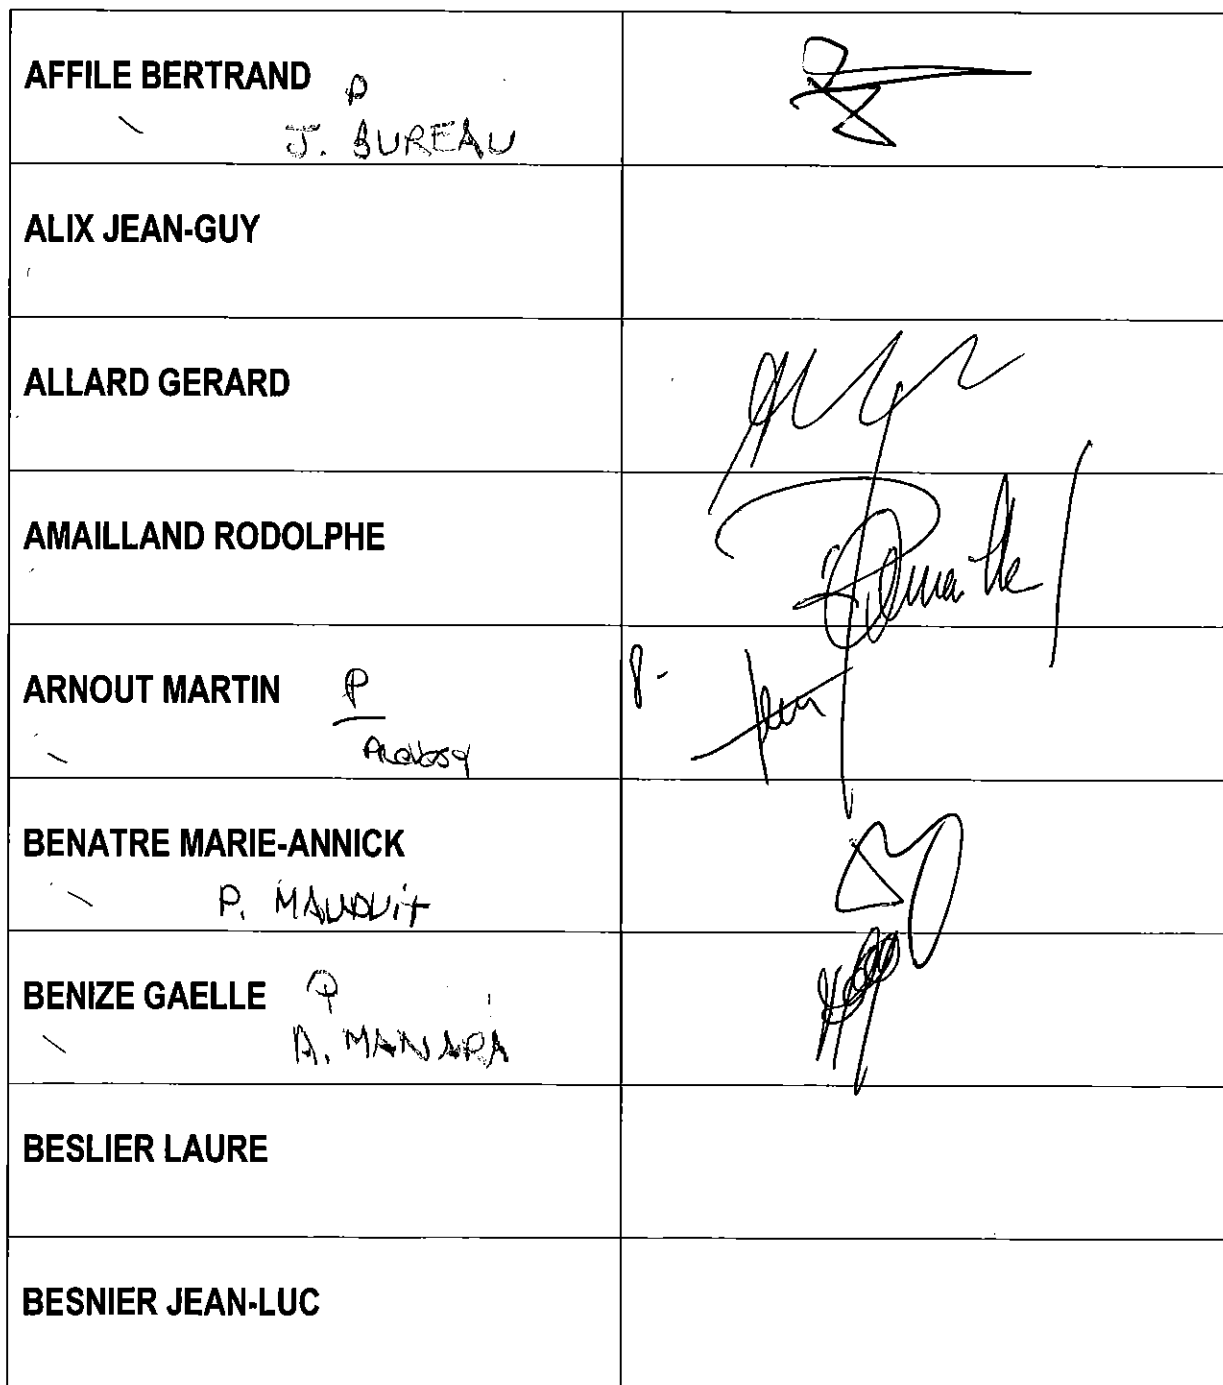 AFFILE BERTRAND P
J. BUREAU
ALIX JEAN-GUY
ALLARD GERARD
AMAILLAND RODOLPHE
ARNOUT MARTIN P
BENATRE MARIE-ANNICK
P. MAUDUIT
BENIZE GAELLE P
A. MANARA
BESLIER LAURE
BESNIER JEAN-LUC